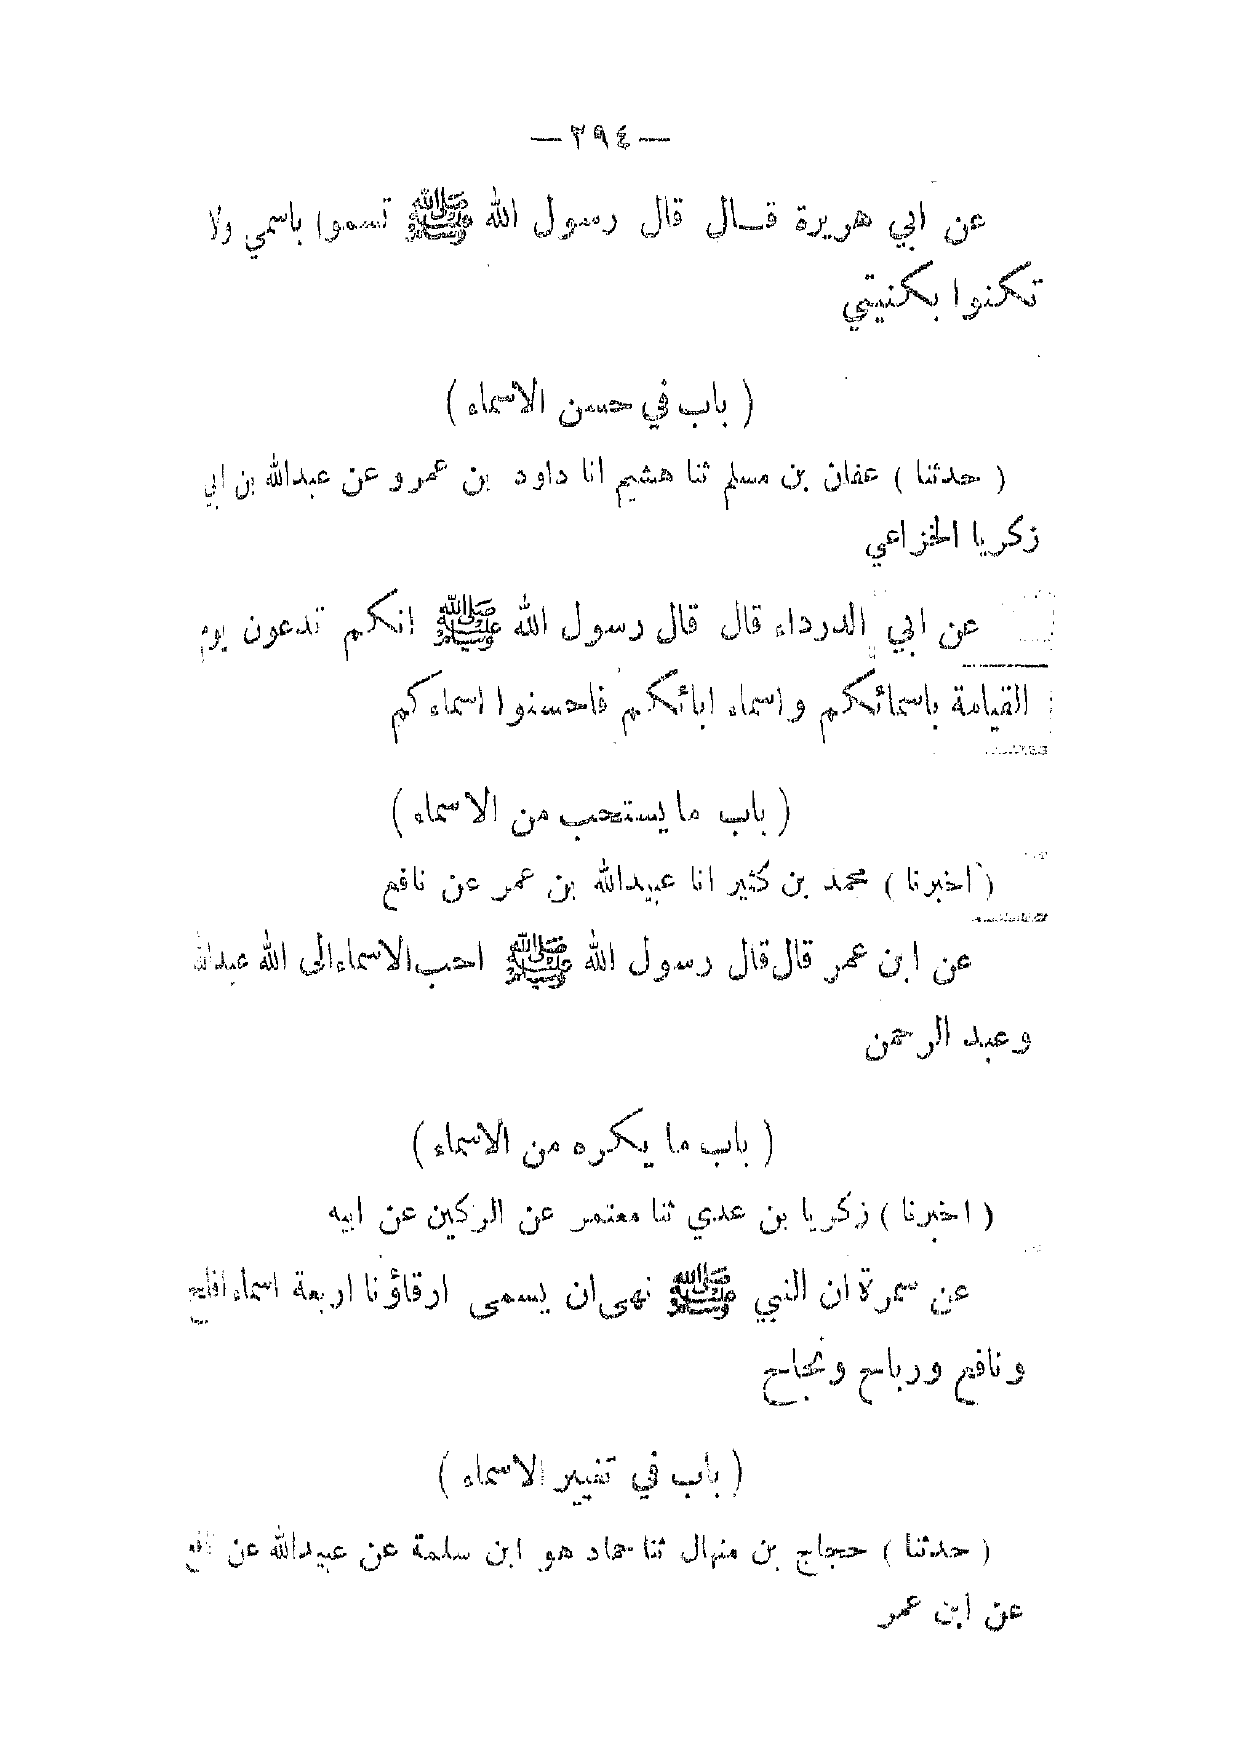 —٢٩٤—
عن ابي هريرة قـال قال رسول الله ﷺ تسموا باسمي ولا
تكنوا بكنيتي
( باب في حسن الاسماء )
( حدثنا ) عفان بن مسلم ثنا هشيم انا داود بن عمرو عن عبدالله بن ابي
زكريا الخزاعي
عن ابي الدرداء قال قال رسول الله ﷺ انكم تدعون يوم
القيامة باسمائكم واسماء ابائكم فاحسنوا اسماءكم
( باب ما يستحب من الاسماء )
( اخبرنا ) محمد بن كثير انا عبيدالله بن عمر عن نافع
عن ابن عمر قال قال رسول الله ﷺ احب الاسماء الى الله عبدالله
وعبد الرحمن
( باب ما يكره من الاسماء )
( اخبرنا ) زكريا بن عدي ثنا معتمر عن الركين عن ابيه
عن سمرة ان النبي ﷺ نهى ان يسمى ارقاؤنا اربعة اسماء افلح
ونافع ورباح ونجاح
( باب في تغيير الاسماء )
( حدثنا ) حجاج بن منهال ثنا حماد هو ابن سلمة عن عبيدالله عن نافع
عن ابن عمر